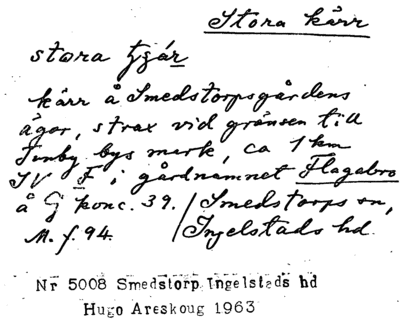 Stora kärr
stora tjär
kärr å Smedstorpsgårdens
ägor, strax vid gränsen till
bys mark, ca 1 km
SV F i gårdnamnet Flagabro
å Gj konc. 39. / Smedstorps sn,
M. f. 94. / Ingelstads hd.
Nr 5008 Smedstorp Ingelstads hd
Hugo Areskoug 1963